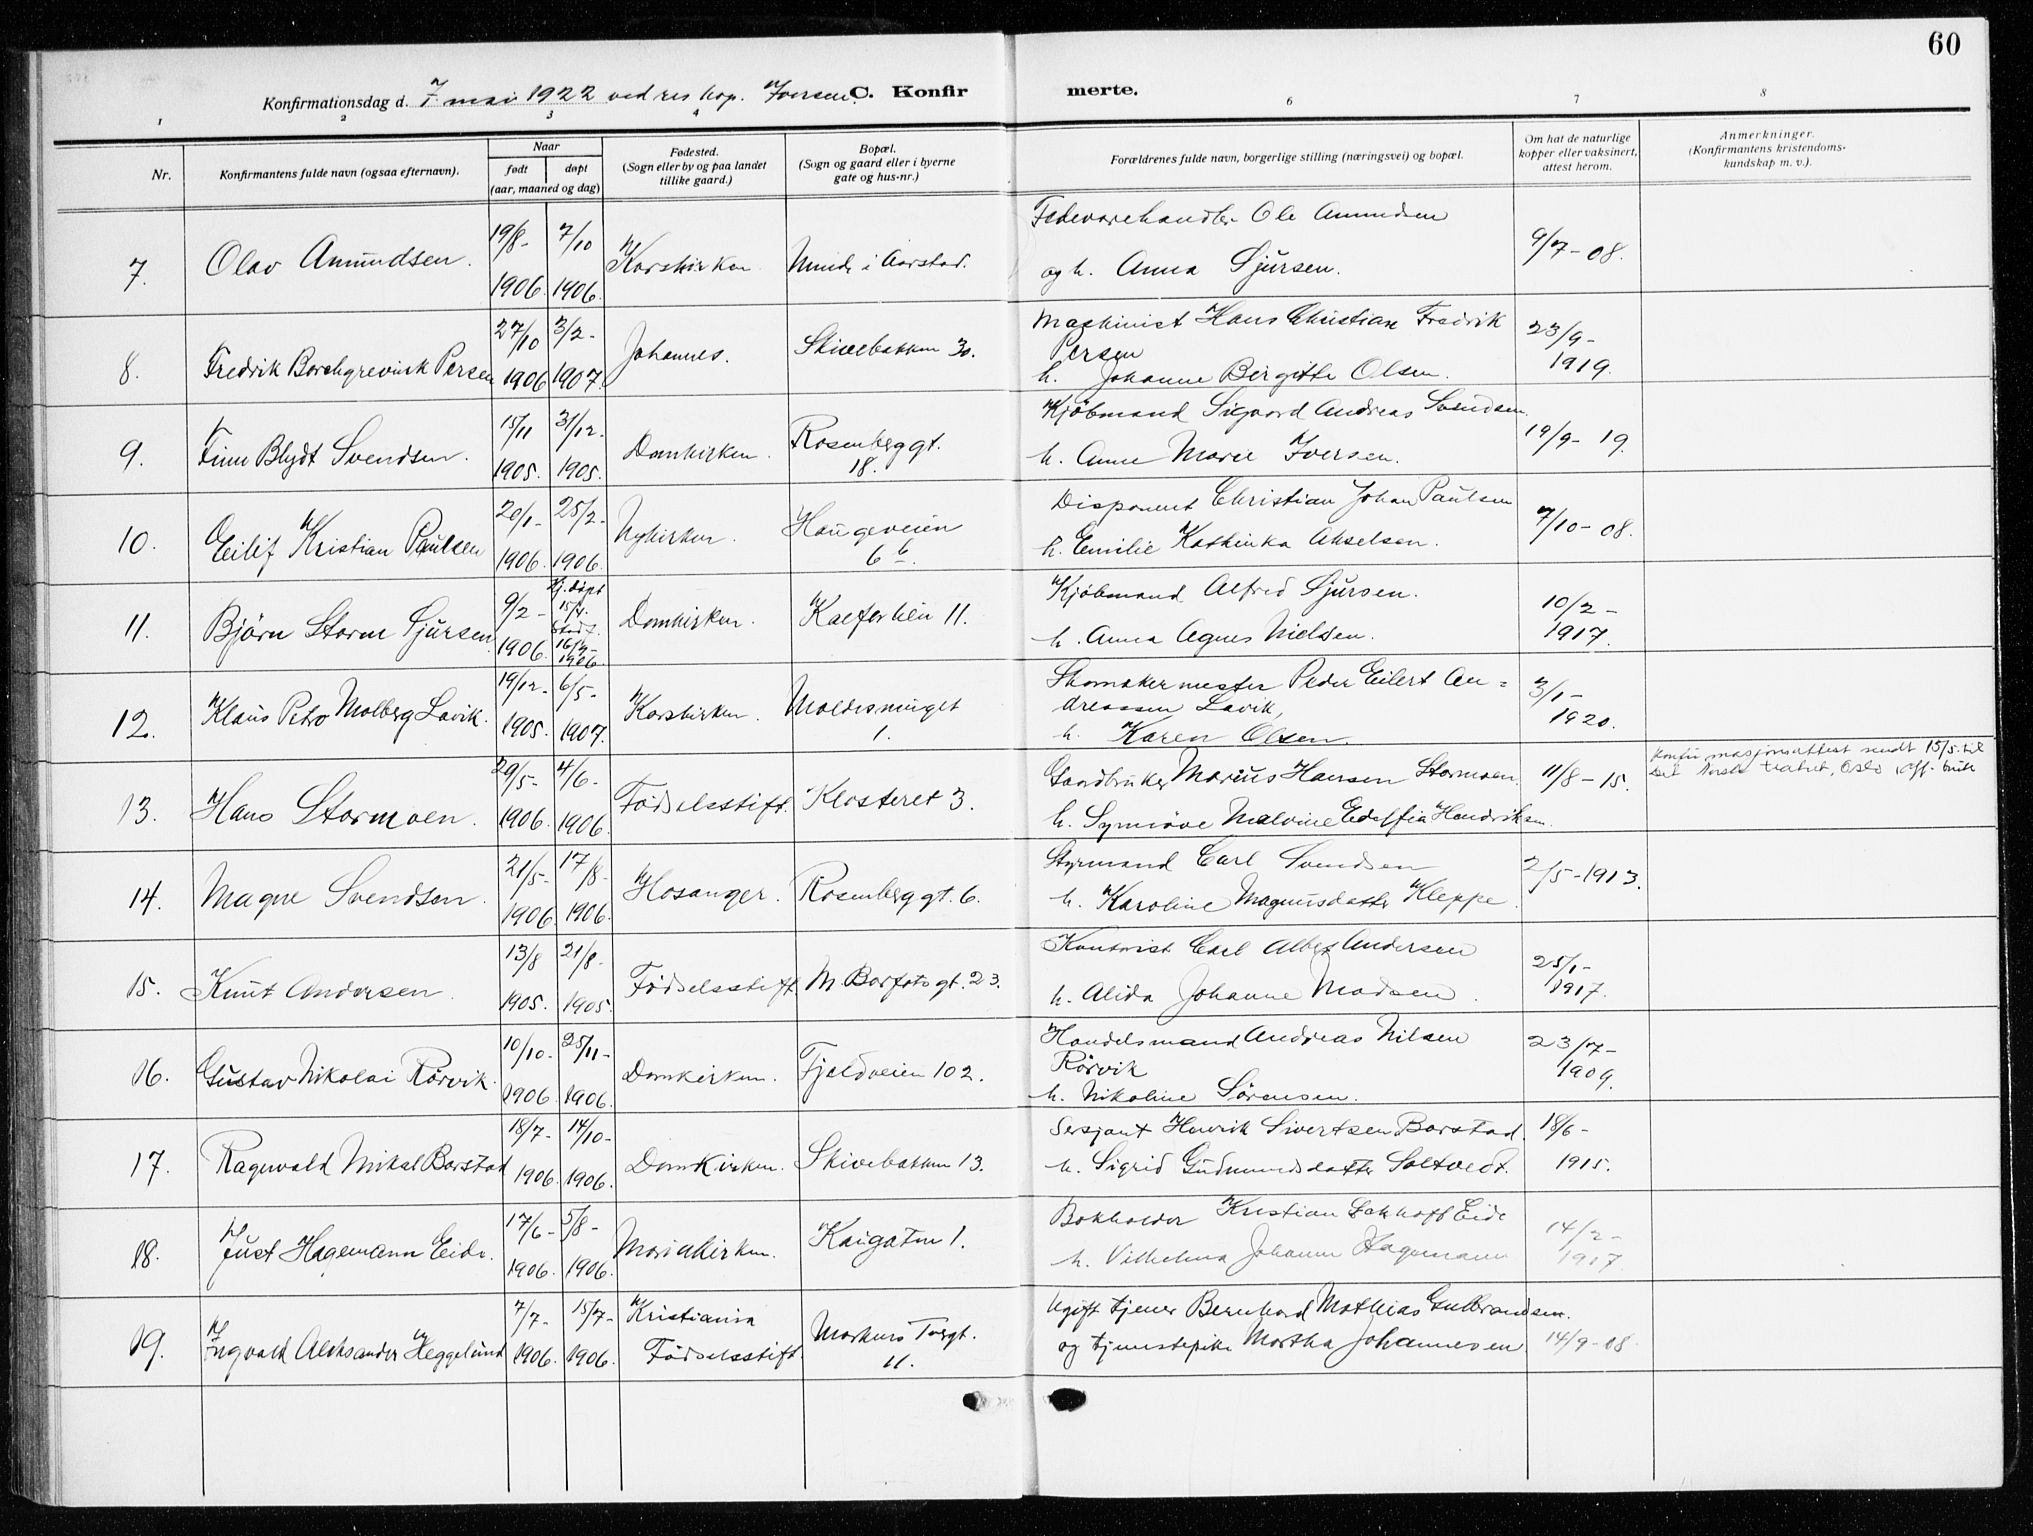 60
Konfirmationsdag d. 7. mai 1922 ved res. kap. Iversen. C. Konfirmerte.
1 2 3 4 6 7 8
Nr. Konfirmantens fulde navn (ogsaa efternavn). Naar født døpt (aar, maaned og dag) Fødested. (Sogn eller by og paa landet tillike gaard.) Bopæl. (Sogn og gaard eller i byerne gate og hus-nr.) Forældrenes fulde navn, borgerlige stilling (næringsvei) og bopæl. Om hat de naturlige kopper eller vaksinert, attest herom. Anmerkninger. (Konfirmantens kristendoms-kundskap m. v.).
7. Olav Amundsen. 19/8- 1906. 7/10 1906. Korskirken. i Aarstad. Fedevarehandler Ole Amundsen og h. Anna Sjursen. 9/7-08.
8. Fredrik Borchgrevink Persen 27/10 1906 3/2- 1907. Johannes. Skivebakken 30. Maskinist Hans Christian Fredrik Persen h. Johanne Birgitte Olsen. 23/9- 1919.
9. Finn Blydt Svendsen. 15/11 1905. 31/12. 1905. Domkirken. Rosenberggt. 18. Kjøbmand Sigvard Andreas Svendsen h. Anne Marie Iversen. 19/9-19.
10. Eilif Kristian Paulsen 20/1- 1906. 25/2- 1906. Nykirken. Haugeveien 6 b. Disponent Christian Johan Paulsen h. Emilie Kathinka Akselsen. 7/10-08.
11. Björn Storm Sjursen. 9/2- 1906. Hj. døpt 15/4. stadf. 16/9- 1906. Domkirken. Kalfarlien 11. Kjöbmand Alfred Sjursen. h. Anna Agnes Nielsen. 10/2- 1917.
12. Klaus Petro Molberg Lavik. 19/12- 1905. 6/5- 1907. Korskirken. Moldesmuget 1. Skomakermester Peder Eilert Andreassen Lavik, h. Karen Olsen. 3/1- 1920.
13. Hans Stormoen. 29/5- 1906. 4/6- 1906. Födselsstift. Klosteret 3. Gaardbruker Marius Hansen Stormoen h. Synnöve Malvine Hendriksen. 11/8-15. Konfirmasjonsattest sendt 15/5. til Det norske teatret, Oslo, off. bruk
14. Magne Svendsen. 21/5- 1906. 17/8- 1906. Hosanger. Rosenberggt. 6. Styrmand Carl Svendsen h. Karoline Magnusdatter Kleppe. 2/5-1913.
15. Knut Andersen. 13/8 1905. 21/8- 1905. Födselsstift. M. Barfotsgt. 23. Kontorist Carl Albert Andersen h. Alida Johanne Madsen. 25/1- 1917.
16. Gustav Nikolai Rörvik. 10/10- 1906. 25/11- 1906. Domkirken. Fjeldveien 102. Handelsmand Andreas Nilsen Rörvik h. Nikoline Sörensen. 23/7- 1909.
17. Ragnvald Mikal Barstad 18/7- 1906. 14/10- 1906. Domkirken. Skivebakken 13. Sersjant Henrik Sivertsen Barstad. h. Sigrid Gudmundsdatter Soltvedt. 18/6- 1915.
18. Just Hagemann Eide. 17/6- 1906. 5/8- 1906. Mariakirken. Kaigaten 1. Bokholder Kristian Eide h. Vilhelmina Johanne Hagemann 14/2- 1917
19. Ingvald Aleksander Heggelund 7/7- 1906. 15/7- 1906. Kristiania Födselsstift. Markus Torgt. 11. Ugift tjener Bernhard Mathias Gulbrandsen. og tjenestepike Martha Johannesen 14/9-08.